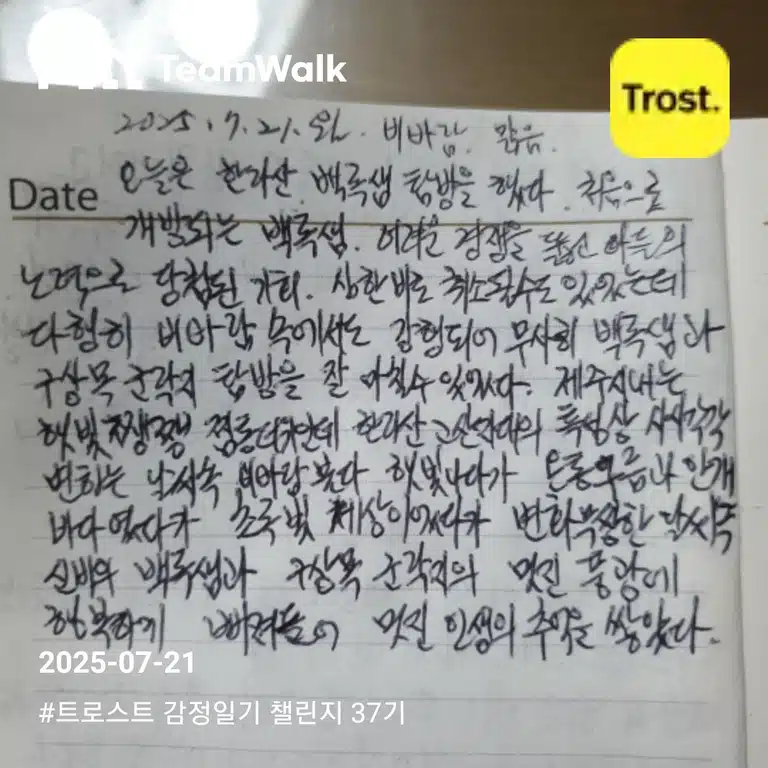 TeamWalk
Trost.
2025. 7. 21. 월. 비바람. 맑음.
Date 오늘은 한라산 백록샘 탐방을 했다. 처음으로
개방되는 백록샘. 어려운 경쟁을 뚫고 아들의
노력으로 당첨된 기회. 상한바로 취소될수도 있었는데
다행히 비바람 속에서도 강행되어 무사히 백록샘과
구상목 군락지 탐방을 잘 마칠수 있었다. 제주시내는
햇빛 쨍쨍 찜통더위인데 한라산 고산지대의 특성상 시시각각
변하는 날씨속 비바람 불다 햇빛나다가 온통 구름과 안개
바다였다가 초록빛 세상이었다가 변화무쌍한 날씨속
신비의 백록샘과 구상목 군락지의 멋진 풍광에
행복하게 빠져들어 멋진 인생의 추억을 쌓았다.
2025-07-21
#트로스트 감정일기 챌린지 37기